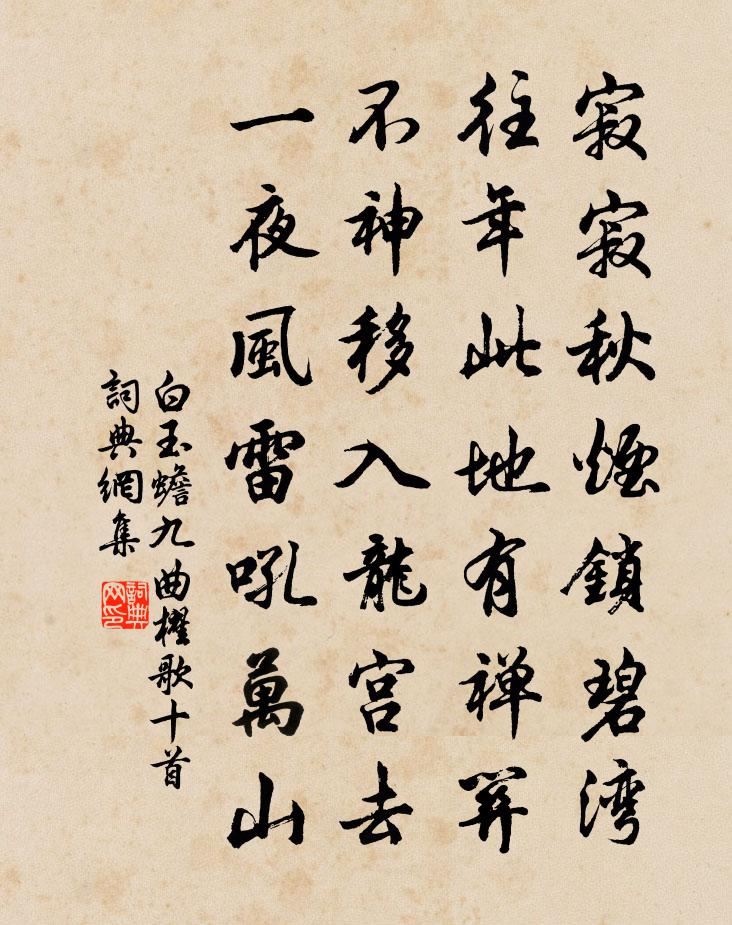 寂寂秋煙鎖碧湾
往年此地有禅關
不神移入龍宮去
一夜風雷吼萬山
白玉蟾九曲櫂歌十首
詞典網集
詞典网印